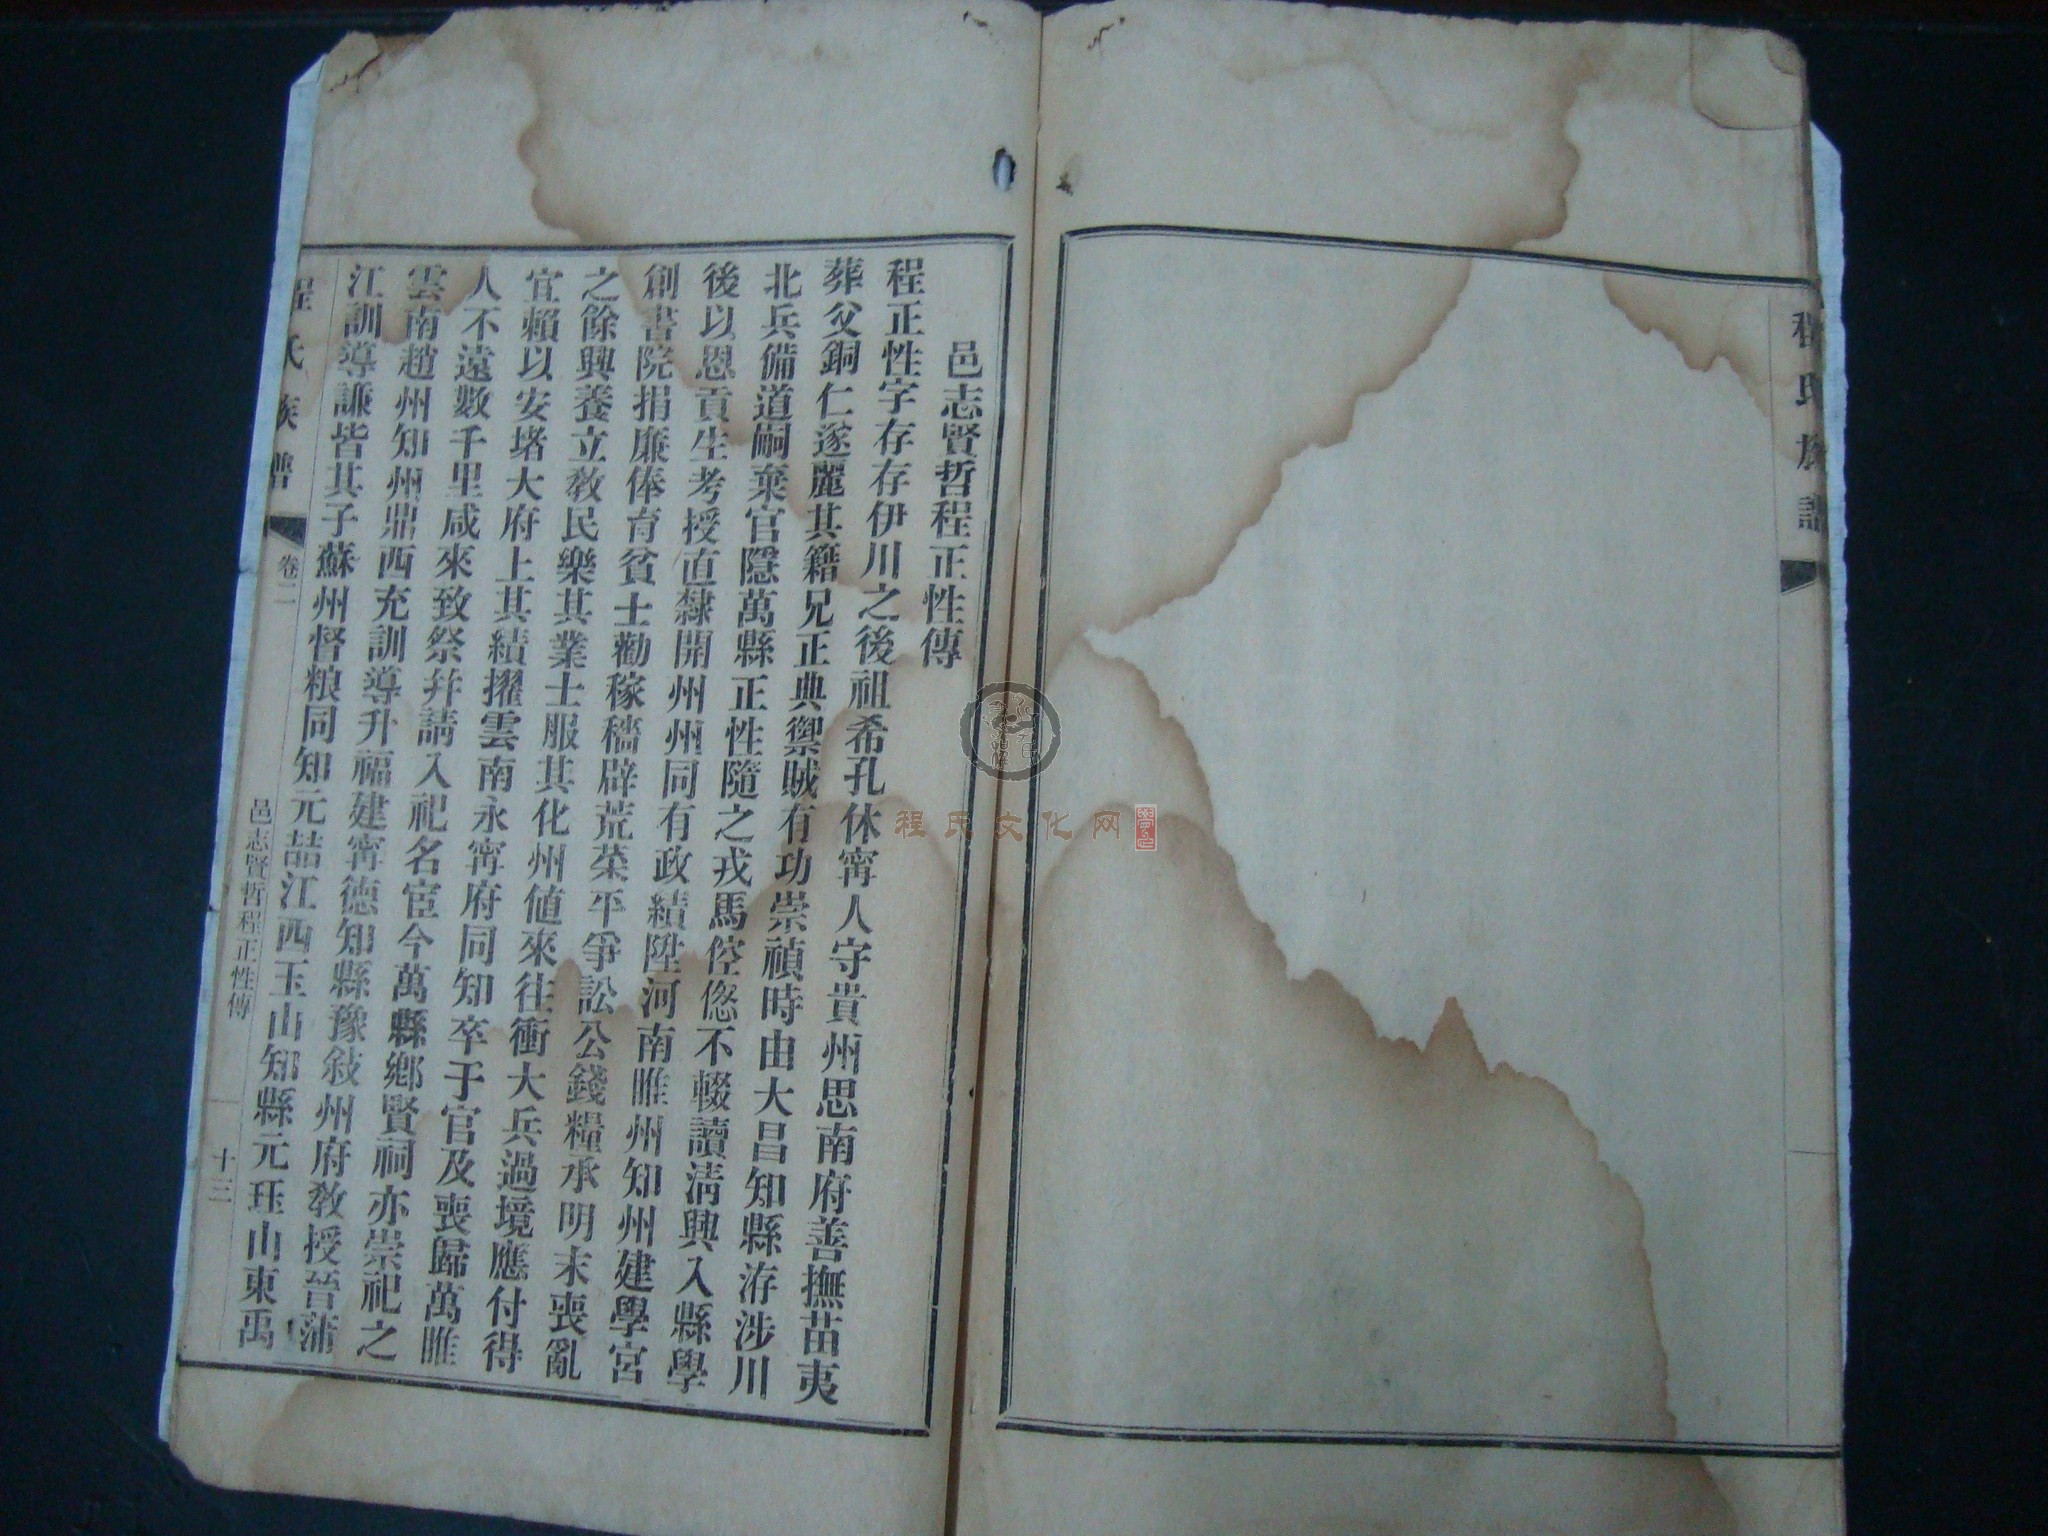 程氏族譜
邑志賢哲程正性傳
程正性字存存伊川之後祖希孔休甯人守貴州思南府善撫苗夷
葬父銅仁遂麗其籍兄正典禦賊有功崇禎時由大昌知縣洊涉川
北兵備道嗣棄官隱萬縣正性隨之戎馬倥偬不輟讀清興入縣學
後以恩貢生考授直隸開州州同有政績陞河南睢州知州建學宮
創書院捐廉俸育貧士勸稼穡辟荒萊平爭訟公錢糧承明末喪亂
之餘興養立教民樂其業士服其化州值來往衝大兵過境應付得
宜賴以安堵大府上其績擢雲南永甯府同知卒于官及喪歸萬睢
人不遠數千里咸來致祭幷請入祀名宦今萬縣鄉賢祠亦崇祀之
雲南趙州知州鼎西充訓導升福建甯德知縣豫敍州府教授晉蒲
江訓導謙皆其子蘇州督粮同知元喆江西玉山知縣元玨山東禹
程氏族譜
卷二
邑志賢哲程正性傳
十三
程氏文化网